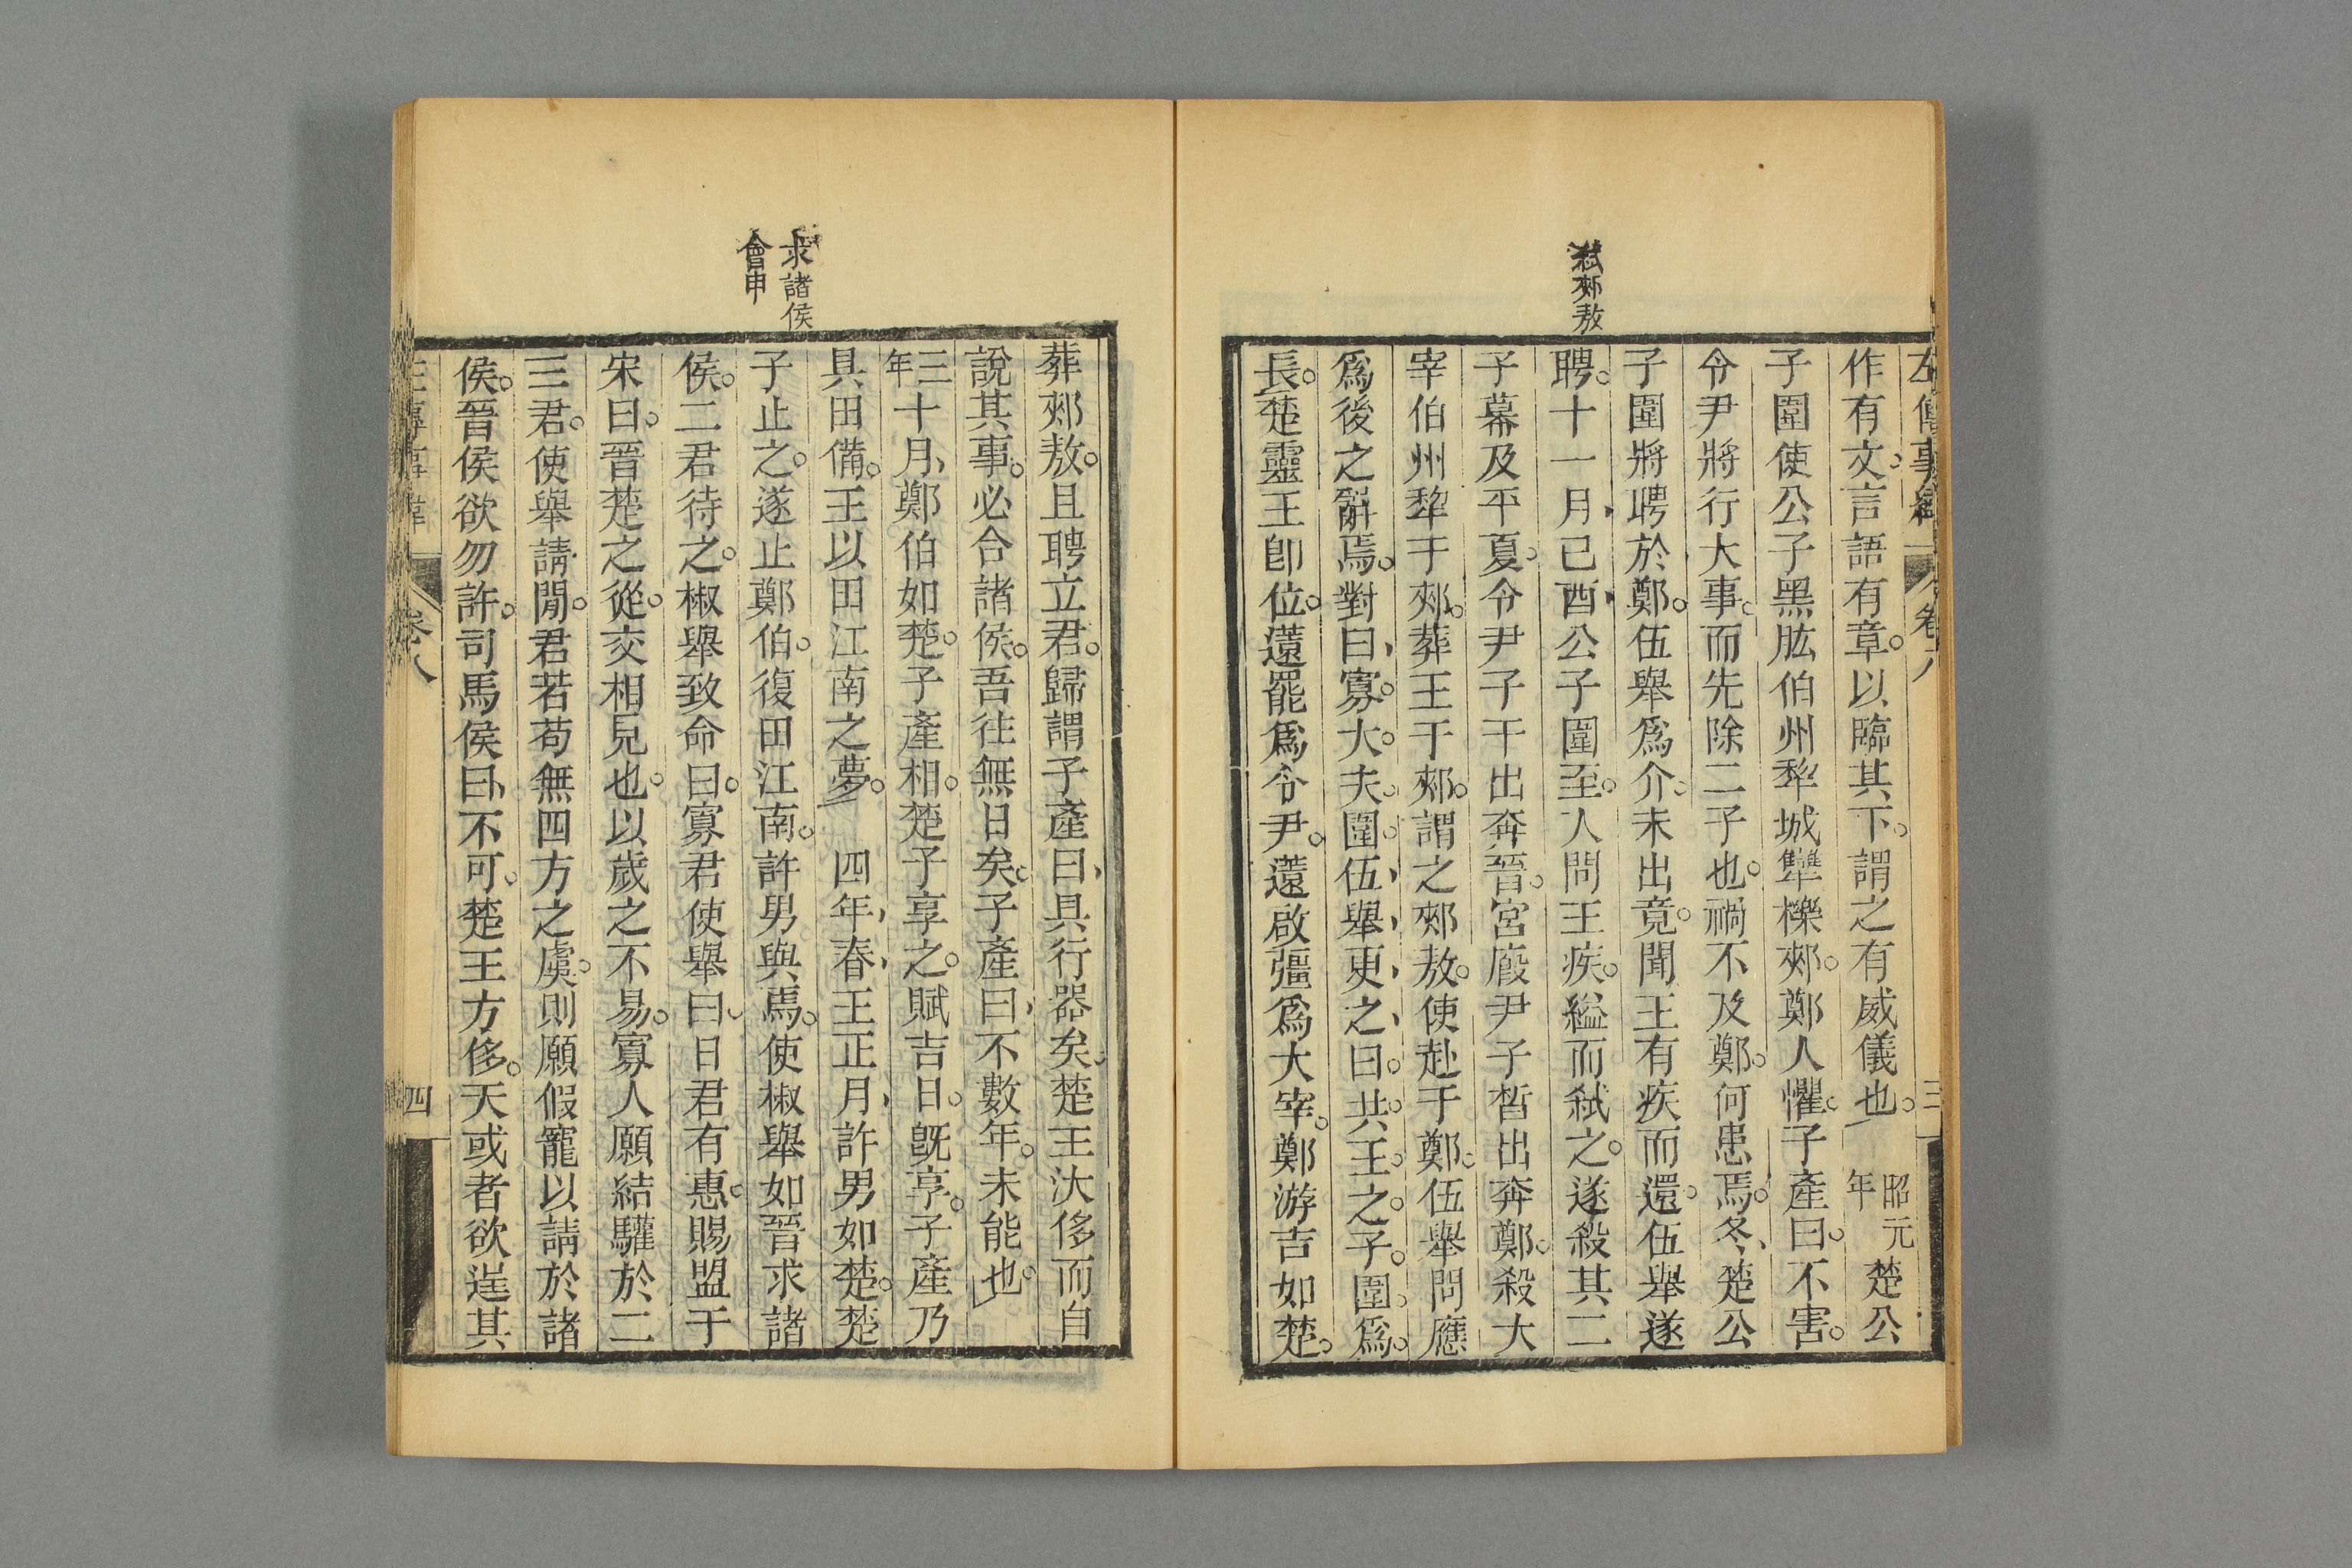 弑郟敖
左傳事緯 卷八 三
作有文言語有章。以臨其下。謂之有威儀也。昭元年楚公
子圍使公子黑肱伯州犂城犨櫟郟。鄭人懼。子產曰。不害。
令尹將行大事。而先除二子也。禍不及鄭。何患焉。冬、楚公
子圍將聘於鄭。伍舉爲介。未出竟。聞王有疾而還。伍舉遂
聘。十一月、己酉、公子圍至。入問王疾。縊而弑之。遂殺其二
子幕及平夏。令尹子干出奔晉。宮廄尹子晳出奔鄭。殺大
宰伯州犂于郟。葬王于郟。謂之郟敖。使赴于鄭。伍舉問應
爲後之辭焉。對曰、寡。大。夫。圍。伍、舉、更、之、曰。共。王。之。子。圍。爲。
長。楚靈王卽位。薳罷爲令尹。薳啟彊爲大宰。鄭游吉如楚。
求諸侯
會申
葬郟敖。且聘立君。歸謂子產曰、具行器矣。楚王汏侈而自
說其事。必合諸侯。吾往無日矣。子產曰、不數年。未能也。
三年十月、鄭伯如楚。子產相。楚子享之。賦吉日。旣享。子產乃
具田備。王以田江南之夢。 四年、春、王正月、許男如楚。楚
子止之。遂止鄭伯。復田江南。許男與焉。使椒舉如晉求諸
侯。二君待之。椒舉致命曰。寡君使舉曰。日君有惠。賜盟于
宋曰。晉楚之從。交相見也。以歲之不易。寡人願結驩於二
三君。使舉請閒。君若苟無四方之虞。則願假寵以請於諸
侯。晉侯欲勿許。司馬侯曰、不可。楚王方侈。天或者欲逞其
卷八 四